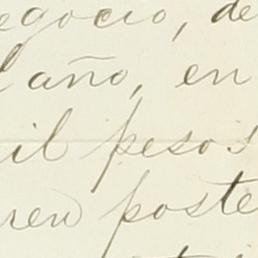 egocio, de
l año, en
il pesos
ren poste